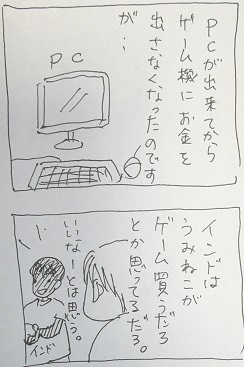 PCが出来てから
ゲーム機にお金を
出さなくなったのです
が…
PC
インドは
うみねこが
ゲーム買うだろ
とか思ってるだろ。
いいなーとは思う。
インド